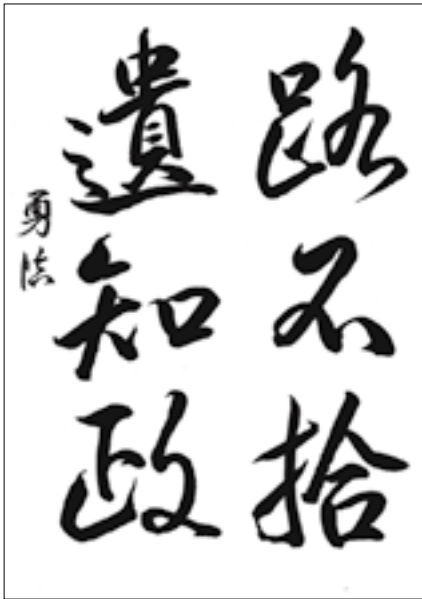 路不拾
遺知政
勇